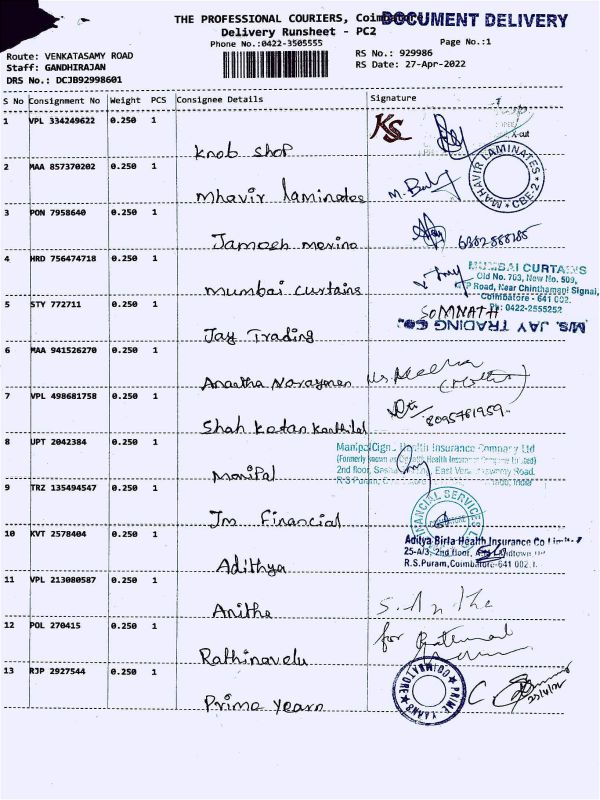 THE PROFESSIONAL COURIERS, Coimbatore
DOCUMENT DELIVERY
Delivery Runsheet - PC2
Phone No.:0422-3505555
Page No.:1
Route: VENKATASAMY ROAD
RS No.: 929986
Staff: GANDHIRAJAN
RS Date: 27-Apr-2022
DRS No.: DCJB92998601
S No Consignment No Weight PCS Consignee Details Signature
1 VPL 334249622 0.250 1
Knob shop
KS
2 MAA 857370202 0.250 1
Mhavir laminates
MAHAVIR LAMINATES CBE-2
3 PON 7958640 0.250 1
Jamosh merino
4 HRD 756474718 0.250 1
mumbai curtains
MUMBAI CURTAINS
Old No. 703, New No. 509,
Road, Near Chinthamani Signal,
Coimbatore - 641 002.
Ph: 0422-2555252
5 STY 772711 0.250 1
Jay Trading
SOMNATH
M/s. JAY TRADING CO.
6 MAA 941526270 0.250 1
Narayanan
7 VPL 498681758 0.250 1
Shah Kanthilal
8095781959
8 UPT 2042384 0.250 1
Manipal
ManipalCigna Health Insurance Company Ltd
2nd floor, East Road,
R.S Puram,
9 TRZ 135494547 0.250 1
Jm Financial
FINANCIAL SERVICES
10 KVT 2578404 0.250 1
Adithya
Aditya Birla Health Insurance Co Limited
25-A/3, 2nd floor,
R.S.Puram, Coimbatore-641 002.
11 VPL 213080587 0.250 1
Anitha
S. Anitha
12 POL 270415 0.250 1
Rathinavelu
for
13 RJP 2927544 0.250 1
Prime Yearn
PRIME YAANS COIMBATORE